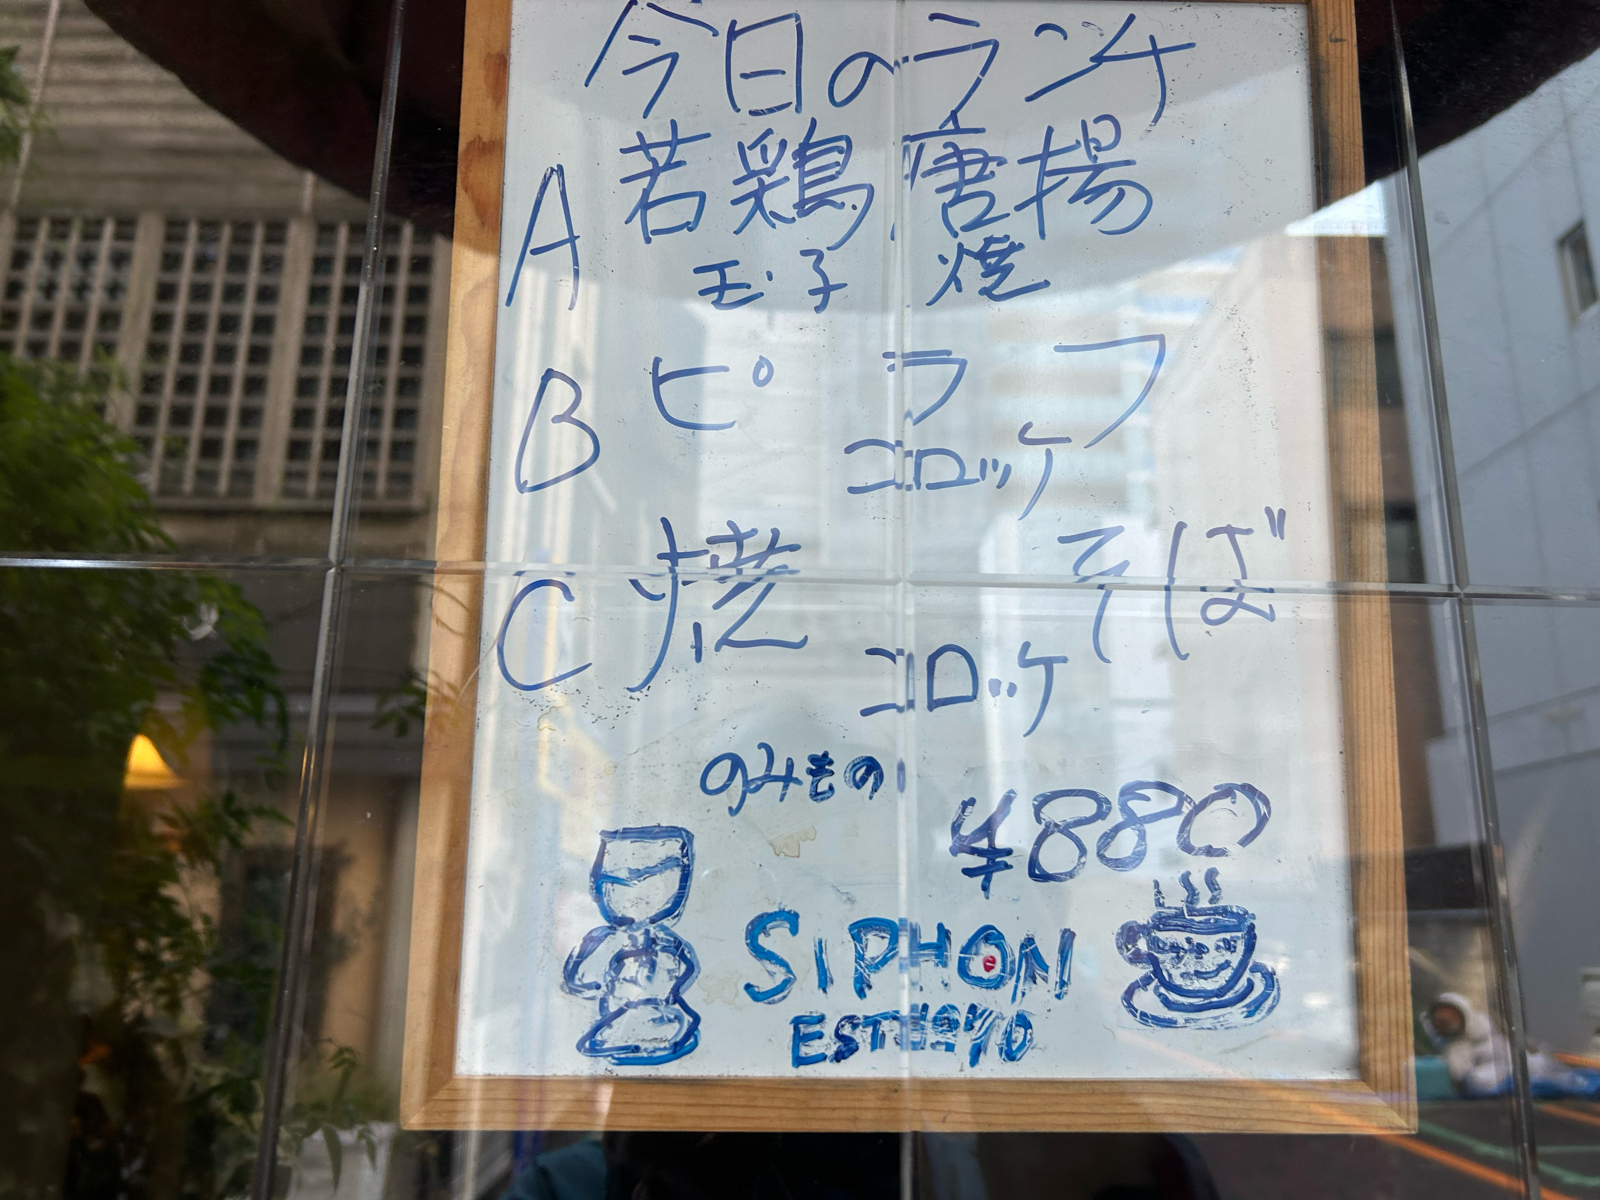 今日のランチ
A 若鶏唐揚
玉子焼
B ピラフ
コロッケ
C 焼そば
コロッケ
のみもの
¥880
SIPHON
EST 1970